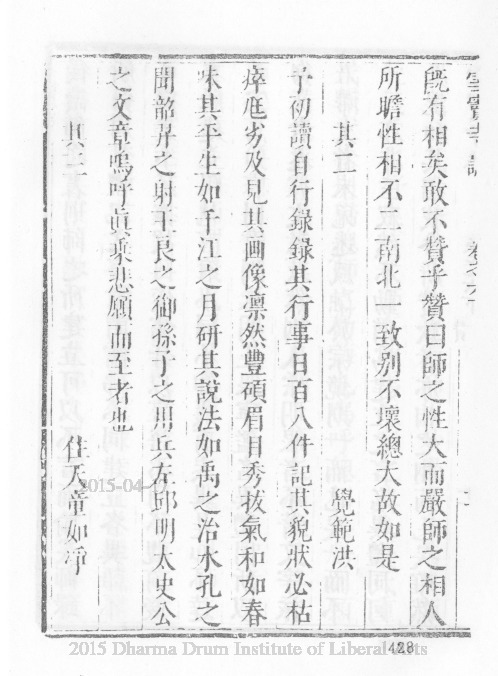 既有相矣敢不贊乎贊曰師之性大而嚴師之相人
所瞻性相不二南北一致别不壞總大故如是
其二 覺範洪
予初讀自行録録其行事日百八件記其貌狀必枯
瘁尫劣及見其画像凛然豐碩眉目秀拔氣和如春
味其平生如千江之月研其說法如禹之治水孔之
聞韶羿之射王良之御孫子之用兵左邱明太史公
之文章嗚呼眞乘悲願而至者也
其三 住天童如淨
2015-04-
2015 Dharma Drum Institute of Liberal Arts
428